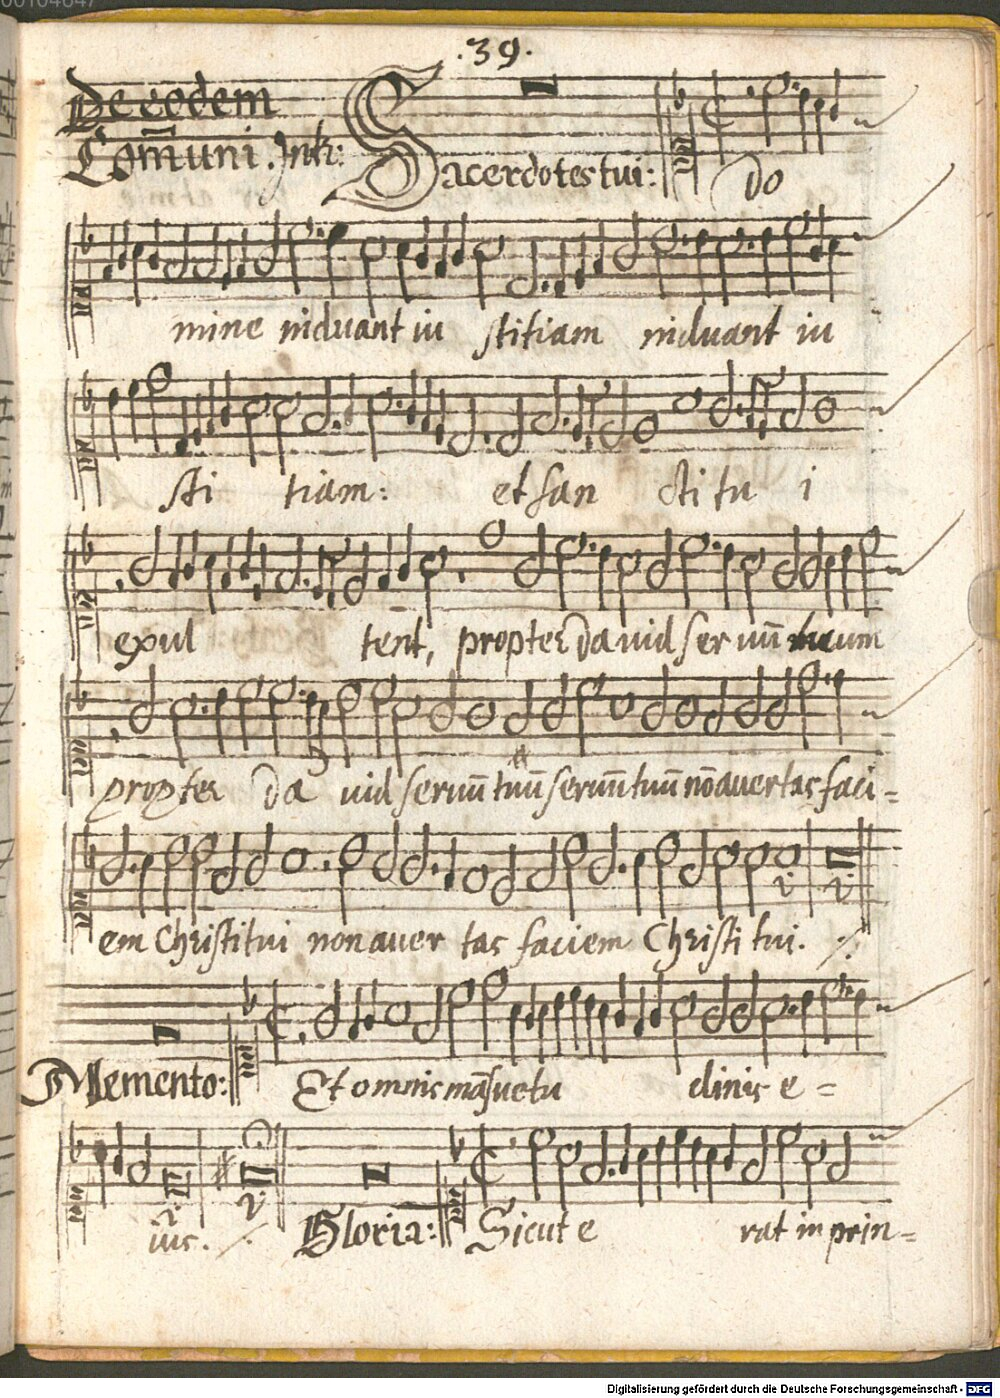 00104647
.39.
De eodem
Com̄uni. Intr:
Sacerdotes tui: Do
mine induant iu stitiam induant iu
sti tiam: et san cti tu i
exul tent, propter Dauid seruū tuum
propter Da uid seruū tuū seruūm tuū nō auertas faci=
em Christi tui non auer tas faciem Christi tui. ./.
Memento: Et omnis mãsuetu dinis e=
ius. ./. Gloria: Sicut e rat in prin=
Digitalisierung gefördert durch die Deutsche Forschungsgemeinschaft - DFG